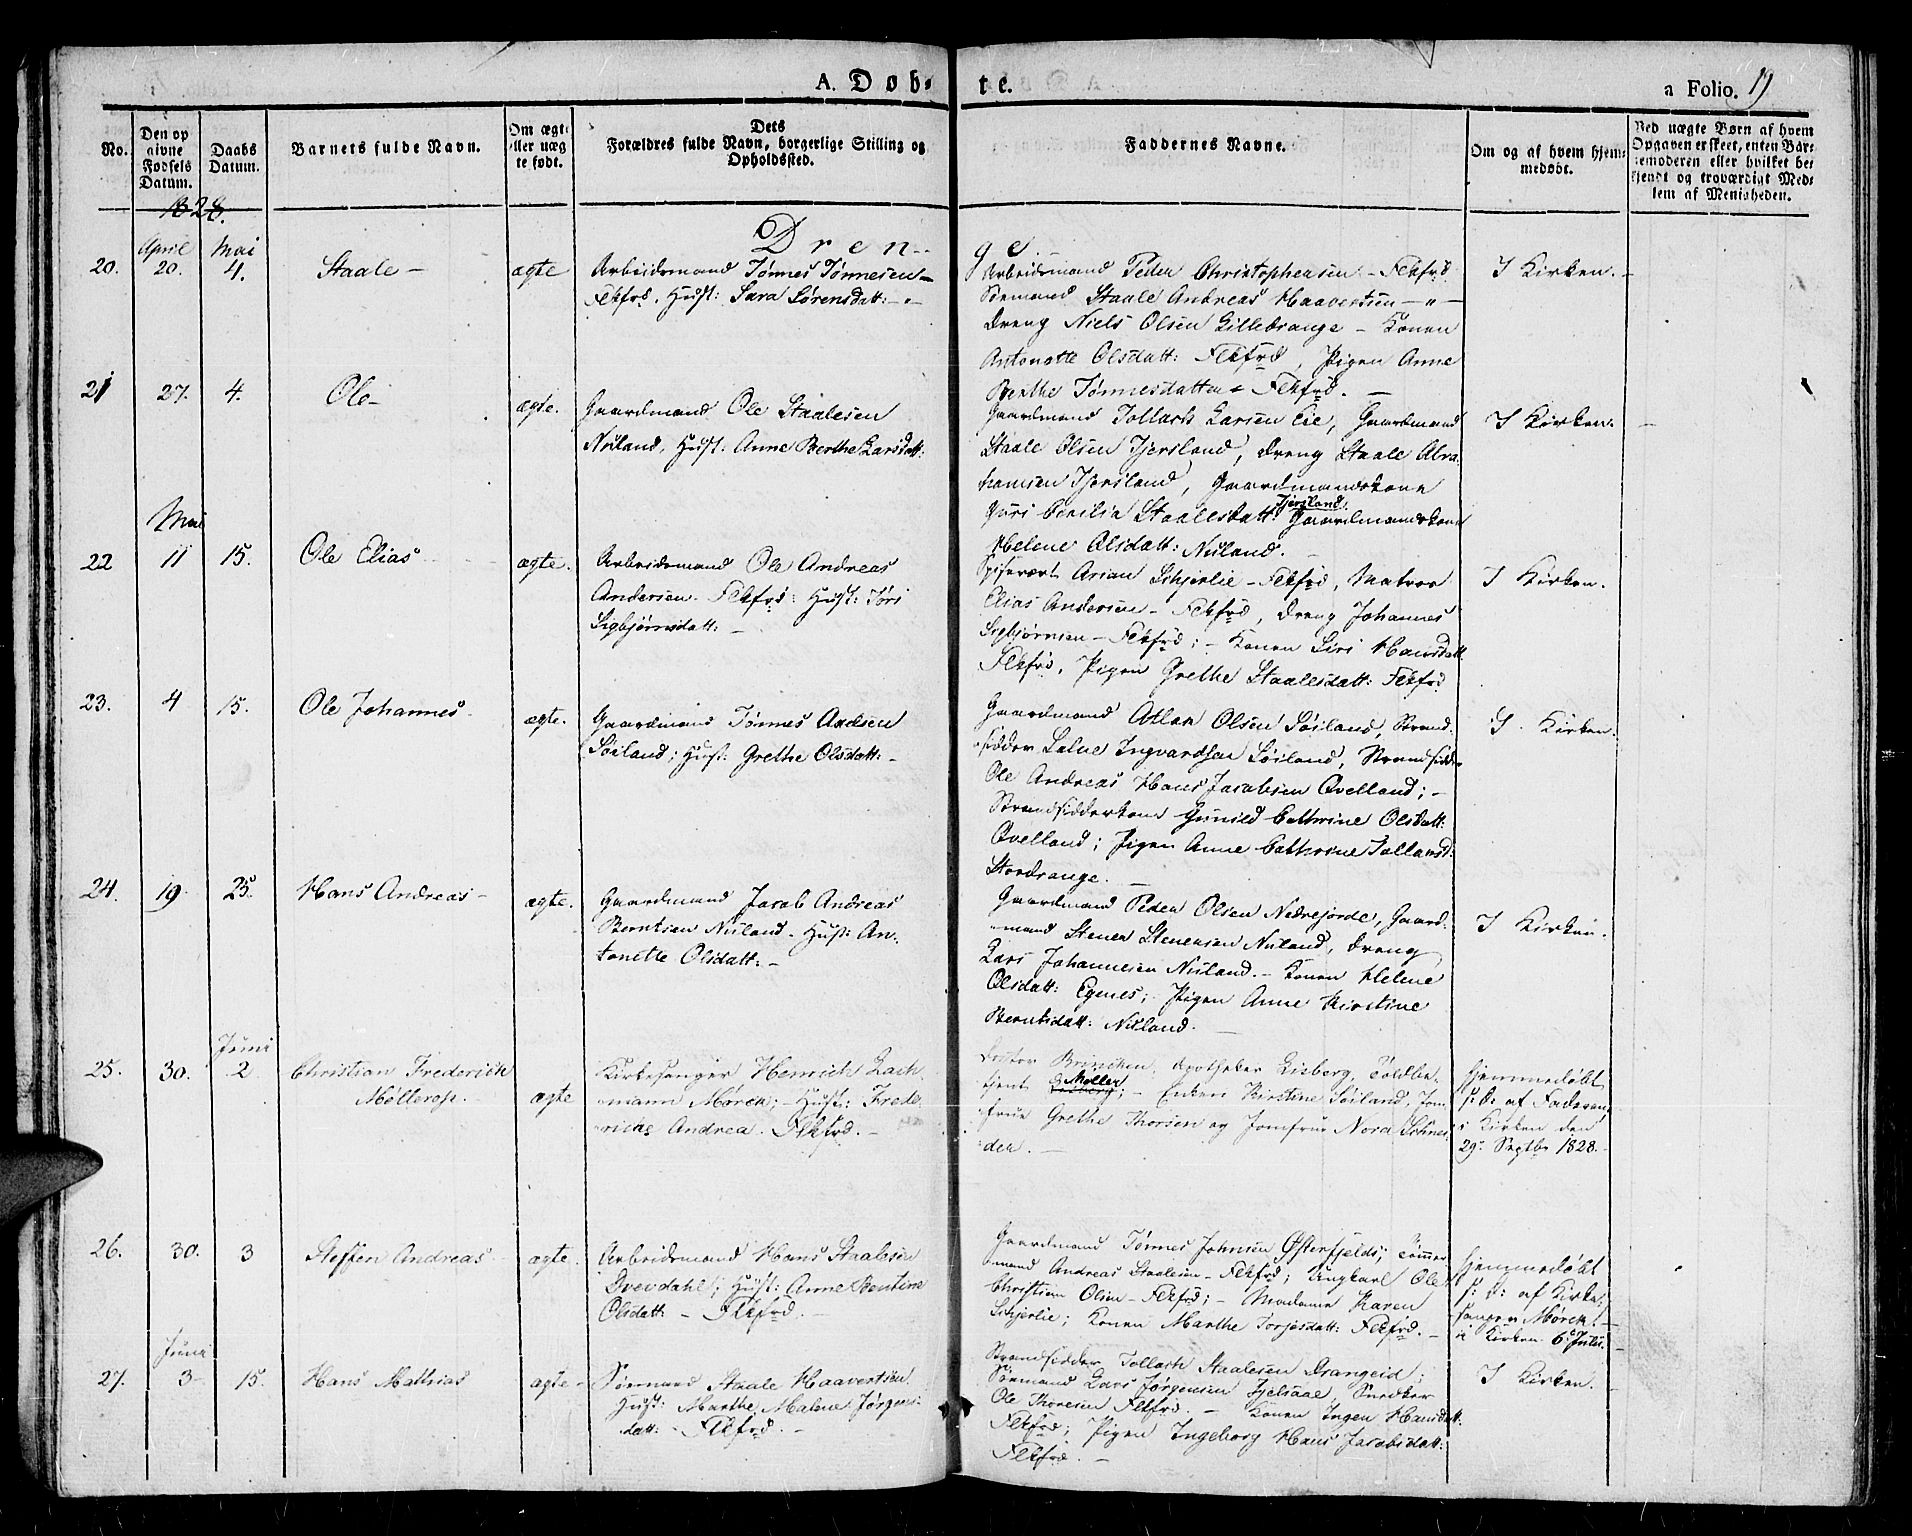 A. Døb-
te.
a Folio. 19
No.
Den op
givne
Fødsels
Datum.
Daabs
Datum.
Barnets fulde Navn.
Om ægte
eller uæg
te født.
Dets
Forældres fulde Navn, borgerlige Stilling og
Opholdssted.
Faddernes Navne.
Om og af hvem hjem-
medøbt.
Ved uægte Børn af hvem
Opgaven er skeet, enten Bar-
nemoderen eller hvilket be-
kjendt og troværdigt Med-
lem af Menigheden.
1828.
Dren-
ge.
April
Mai
20.
20.
4.
Staale -
ægte
Arbeidsmand Tønnes Tønnesen -
Flkfrd. Hust: Sara Sørensdatt: - "
Arbeidsmand Peder Christophersen - Flkfrd
Sømand Staale Andreas Haavertsen - " -
Dreng Niels Olsen Lilledrange - Konen
Antonette Olsdatt: Flkfrd, Pigen Anne
Berthe Tønnesdatter - Flkfrd. -
I Kirken. -
21
27.
4.
Ole -
ægte.
Gaardmand Ole Staalesen
Nuland, Hust: Anne Berthe Larsdatt:
Gaardmand Tollach Larsen Eie, Gaardmand
Staale Olsen Tjersland, Dreng Staale Abra-
hamsen Tjersland, Gaardmandskone
Guri Cecilia Staalesdatt: Tjersland. Gaardmandskone
Helene Olsdatt: Nuland. -
I Kirken.
Mai
22
11
15.
Ole Elias
ægte.
Arbeidsmand Ole Andreas
Andersen. Flkfrd: Hust: Jøri
Sigbjørnsdatt: -
Spisevært Arian Schjerlie - Flkfrd, Matros
Elias Andersen - Flkfrd, Dreng Johannes
Sigbjørnsen - Flkfrd; - Konen Siri Hansdatt
Flkfrd, Pigen Grethe Staalesdatt: Flkfrd
I Kirken.
23.
4
15.
Ole Johannes
ægte.
Gaardmand Tønnes Andsen
Søiland; Hust: Grethe Olsdatt: -
Gaardmand Atlak Olsen Søiland, Strand-
sidder Salve Ingvardsen Søiland, Strandsidd-
Ole Andreas Hans Jacobsen Qvelland; -
Strandsidderkone Gunild Cathrine Olsdatt:
Qvelland; Pigen Anne Cathrine Tollaksd:
Stordrange. -
I Kirken.
24.
19.
25.
Hans Andreas -
ægte.
Gaardmand Jacob Andreas
Berntsen Nuland. Hust: An-
tonette Olsdatt: -
Gaardmand Peder Olsen Nedrejorde, Gaard-
mand Stener Stenersen Nuland, Dreng
Lars Johannesen Nuland. - Konen Helene
Olsdatt: Egenes; Pigen Anne Kirstine
Berntsdatt: Nuland. -
I Kirken.
Juni
25.
30.
2
Christian Frederich
Møllerop.
ægte
Kirkesanger Henrich Zach-
mann Mørch; - Hust: Frede-
ricke Andrea. Flkfrd. -
Doctor Apotheker Lisberg, Toldbe-
tjent Møller; - Enken Kirstine Søiland, Jom-
frue Grethe Thorsen og Jomfrue Nora Schnei-
der. -
Hjemmedøbt
p: D: af Faderen,
i Kirken den
29de Septbr 1828.
26.
30.
3
Steffen Andreas
ægte.
Arbeidsmand Hans Staalesen
Dverdahl; Hust: Anne Bentine
Olsdatt: - Flkfrd. -
Gaardmand Tønnes Johnsen Østerfjelds; Tømmer-
mand Andreas Staalesen - Flkfrd; Ungkarl Ole
Christian Olsen - Flkfrd; - Madame Karen
Schjerlie; Konen Marthe Torjesdatt: Flkfrd. -
Hjemmedøbt
p: D: af Kirke-
sanger Mørch! -
i Kirken 6. Juli. -
Juni
27.
3
15.
Hans Mathias
ægte -
Sømand Staale Haavertsen
Hust: Marthe Malene Jørgens-
datt: - Flkfrd. -
Strandsidder Tollach Staalesen Drangeid;
Sømand Lars Jørgensen Fjelsaae, Snedker
Ole Thoresen Flkfrd. - Konen Ingen Hansdatt:
Flkfrd; Pigen Ingeborg Hans Jacobsdatt:
Flkfrd. -
I Kirken. -